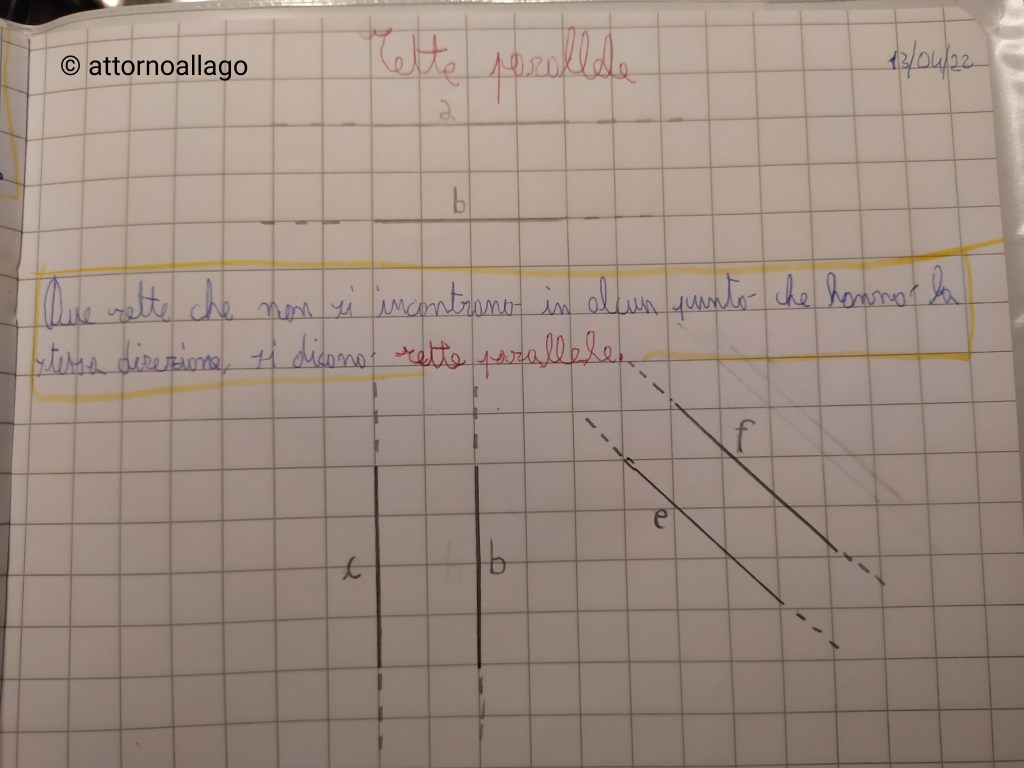 © attornoallago
rette parallele
13/04/22
a
b
Due rette che non si incontrano in alcun punto che hanno la
stessa direzione, si dicono rette parallele.
f
e
c
b